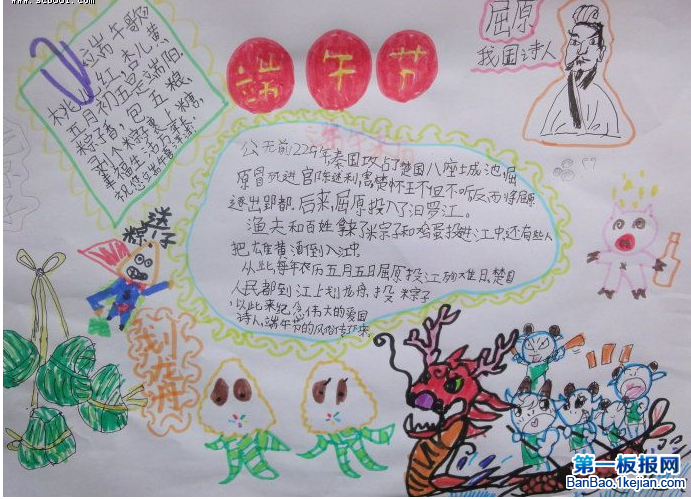 端午节
端午歌
桃儿红,杏儿黄,
五月初五是端阳.
粽子香,包五粮,
剥个粽子裹上糖,
幸福生活万年长.
屈原
我国诗人
公元前229年秦国攻占了楚国八座城池,屈
原冒死进宫陈述利害,楚怀王不但不听反而将屈原
逐出郢都,后来,屈原投入了汨罗江。
渔夫和百姓拿了米宗子和鸡蛋投进江中,还有些人
把雄黄酒倒入江中.
从此,每年农历五月五日屈原投江殉难日,楚国
人民都到江上划龙舟,投粽子
以此来纪念伟大的爱国
诗人,端午节的风俗传下来.
送
粽子
划龙舟
第一板报网
BanBao.1kejian.com